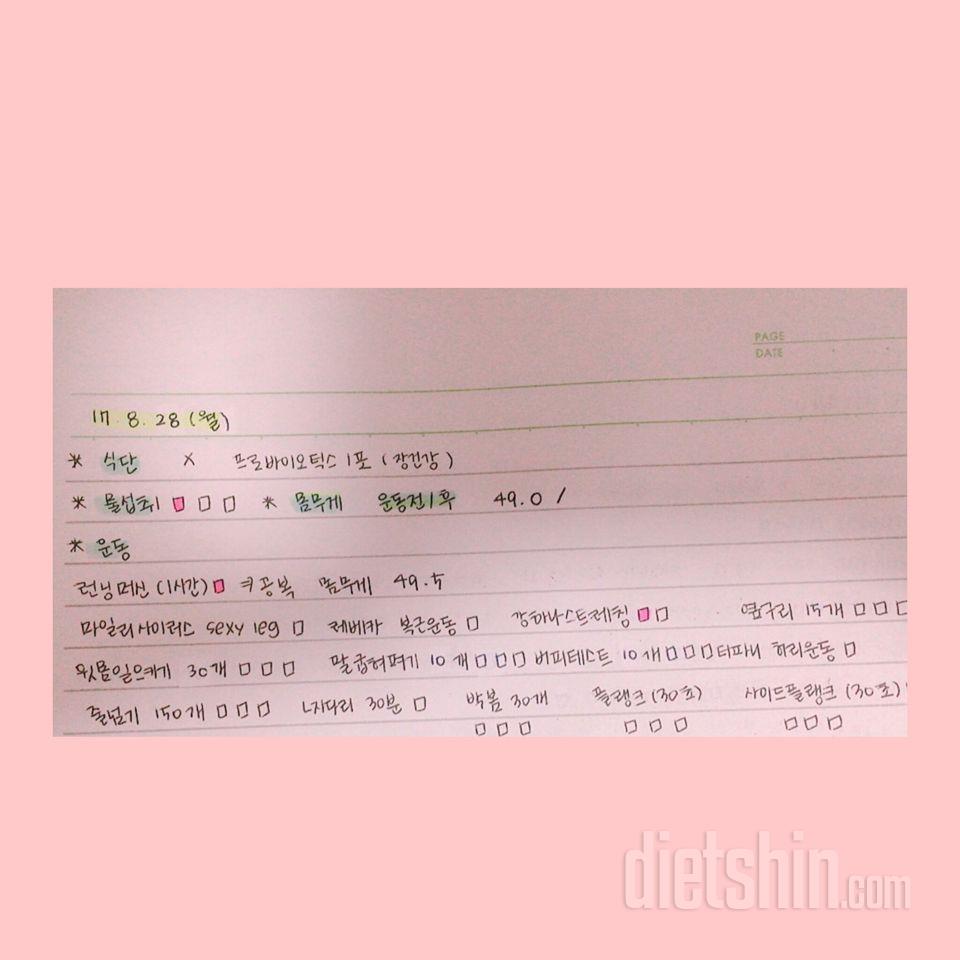 PAGE
DATE
17. 8. 28 (월)
* 식단 × 프로바이오틱스 1포 (장건강)
* 물섭취 □ □ □ * 몸무게 운동전/후 49.0 /
* 운동
런닝머신 (1시간) □ 공복 몸무게 49.5
마일리사이러스 sexy leg □ 레베카 복근운동 □ 강하나스트레칭 □ □ 옆구리 15개 □ □ □
윗몸일으키기 30개 □ □ □ 말굽혀펴기 10개 □ □ □ 버피테스트 10개 □ □ □ 티파니 허리운동 □
줄넘기 150개 □ □ □ L자다리 30분 □ 박봄 30개 플랭크 (30초) 사이드플랭크 (30초)
□ □ □ □ □ □ □ □ □
dietshin.com